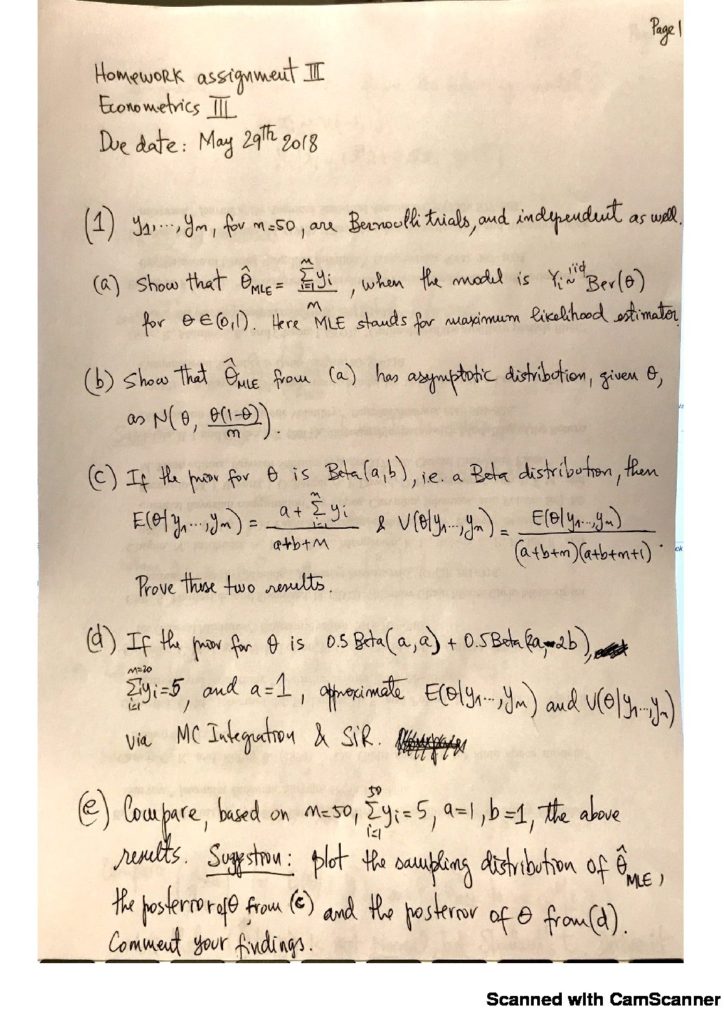 Page 1
Homework assignment III
Econometrics III
Due date: May 29th 2018
(1) y₁,...,yₙ, for n=50, are Bernoulli trials, and independent as well.
(a) Show that θ̂_MLE = Σᵢ₌₁ⁿ yᵢ / n, when the model is Yᵢ ~iid Ber(θ)
for θ ∈ (0,1). Here MLE stands for maximum likelihood estimator.
(b) Show that θ̂_MLE from (a) has asymptotic distribution, given θ,
as N(θ, θ(1-θ)/n).
(c) If the prior for θ is Beta(a,b), i.e. a Beta distribution, then
E(θ|y₁...,yₙ) = (a + Σᵢ₌₁ⁿ yᵢ)/(a+b+n) & V(θ|y₁...,yₙ) = E(θ|y₁...yₙ)/((a+b+n)(a+b+n+1)).
Prove these two results.
(d) If the prior for θ is 0.5 Beta(a,a) + 0.5 Beta(2a, 2b),
Σyᵢ=5, and a=1, approximate E(θ|y₁...,yₙ) and V(θ|y₁...,yₙ)
via MC Integration & SIR.
(e) Compare, based on n=50, Σᵢ₌₁⁵⁰ yᵢ=5, a=1, b=1, the above
results. Suggestion: plot the sampling distribution of θ̂_MLE,
the posterior of θ from (c) and the posterior of θ from (d).
Comment your findings.
Scanned with CamScanner